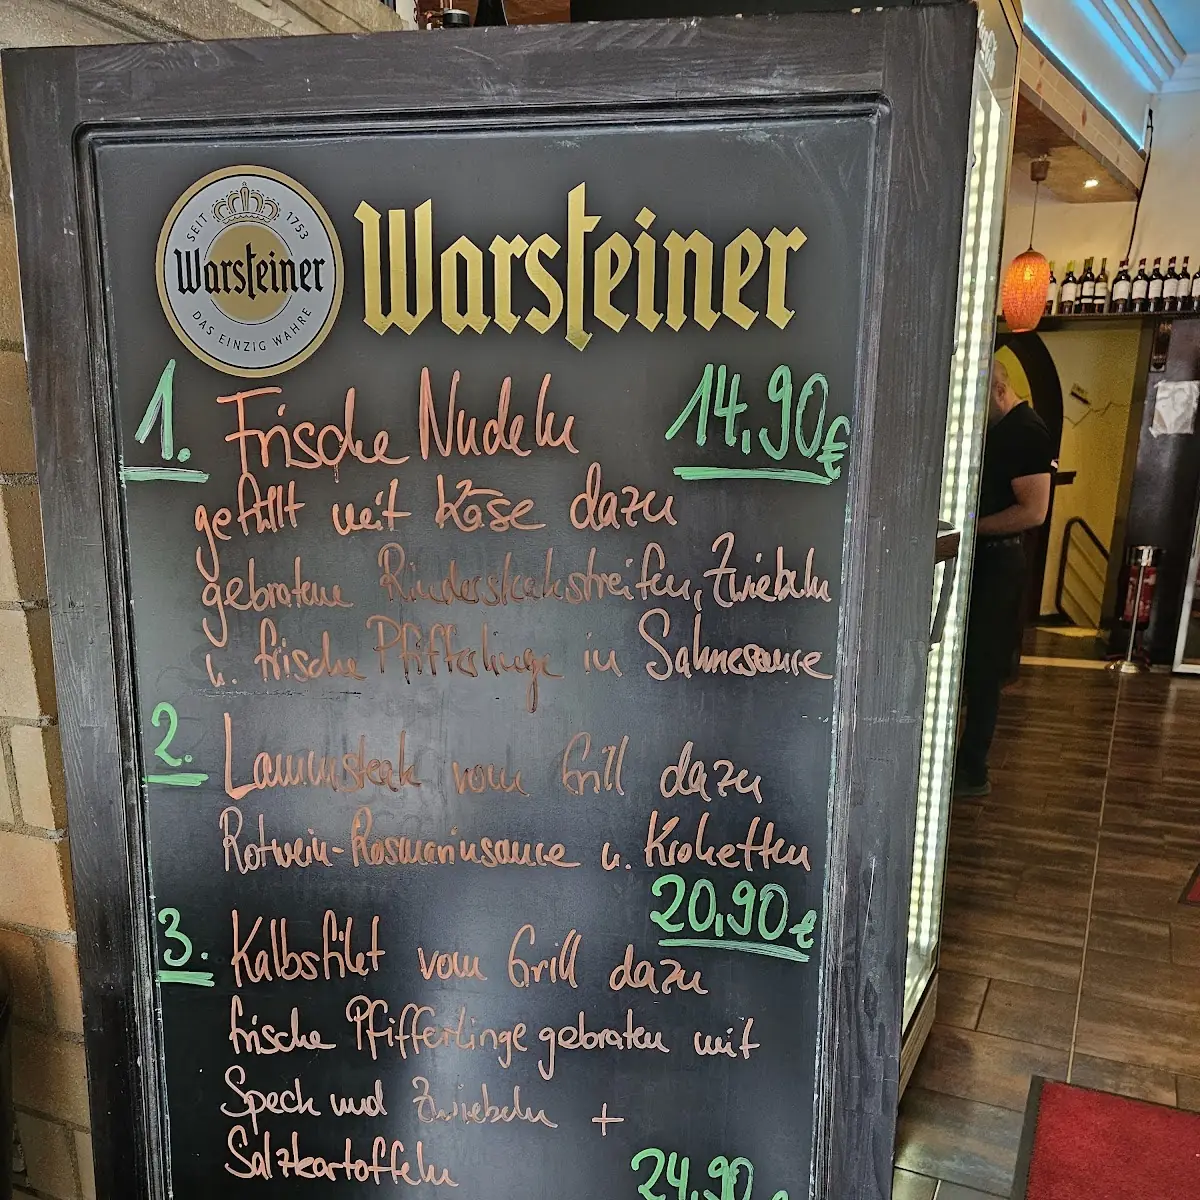 SEIT 1753
Warsteiner
DAS EINZIG WAHRE
Warsteiner
1. Frische Nudeln 14,90€
gefüllt mit Käse dazu
gebratene Rindersteakstreifen, Zwiebeln
u. frische Pfifferlinge in Sahnesauce
2. Lammsteak vom Grill dazu
Rotwein-Rosmarinsauce u. Kroketten
20,90€
3. Kalbsfilet vom Grill dazu
frische Pfifferlinge gebraten mit
Speck und Zwiebeln +
Salzkartoffeln 24,90